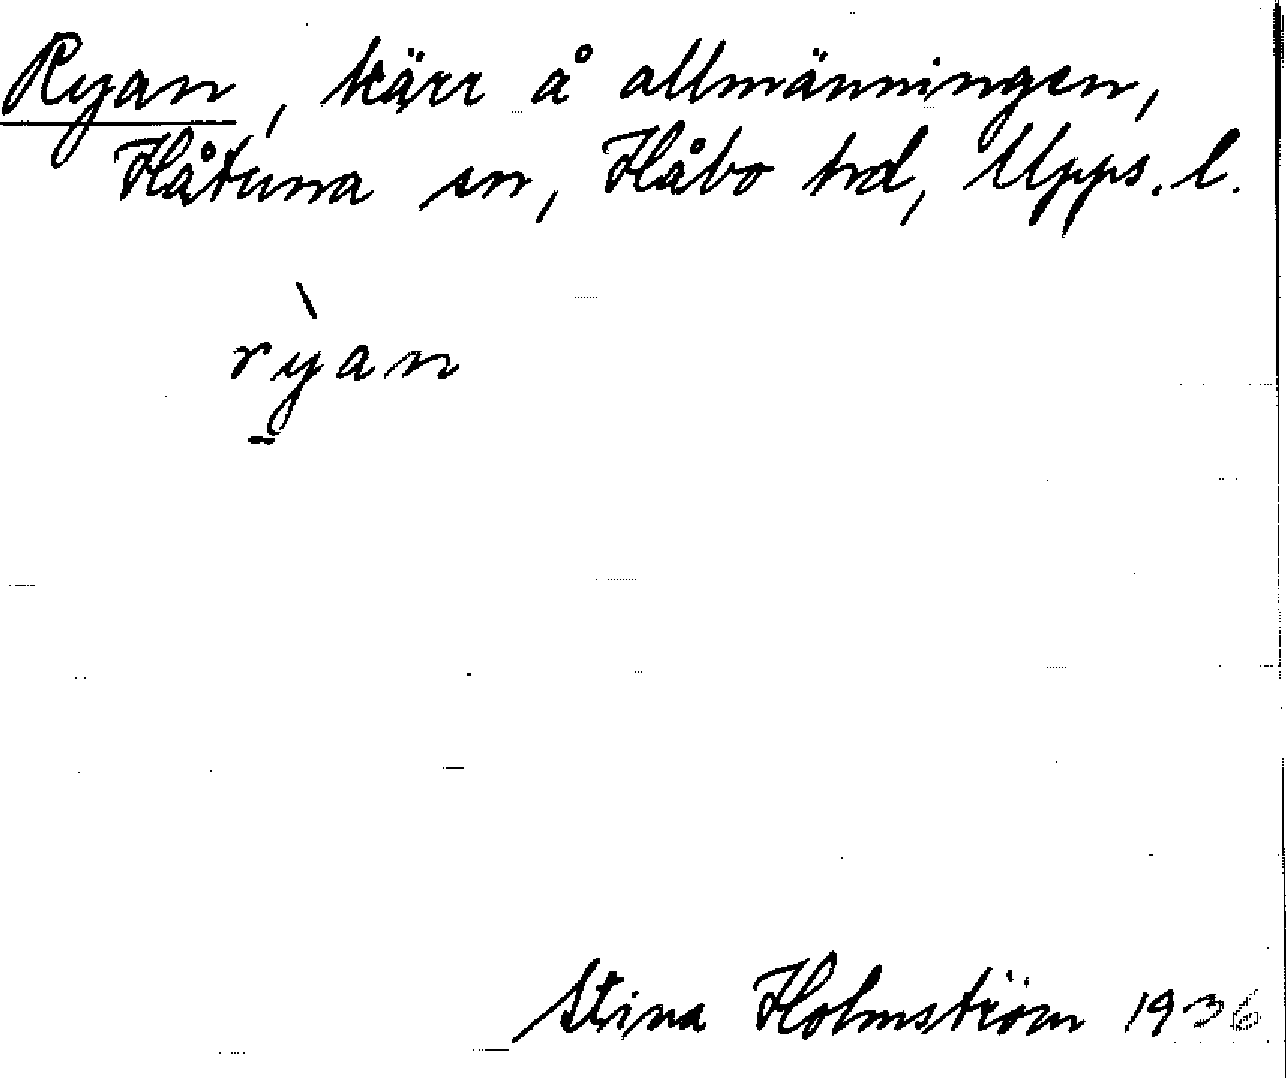 Ryan, kärr å allmänningen,
Håtuna sn, Håbo hd, Upps. l.
rỳan
Stina Holmström 1936